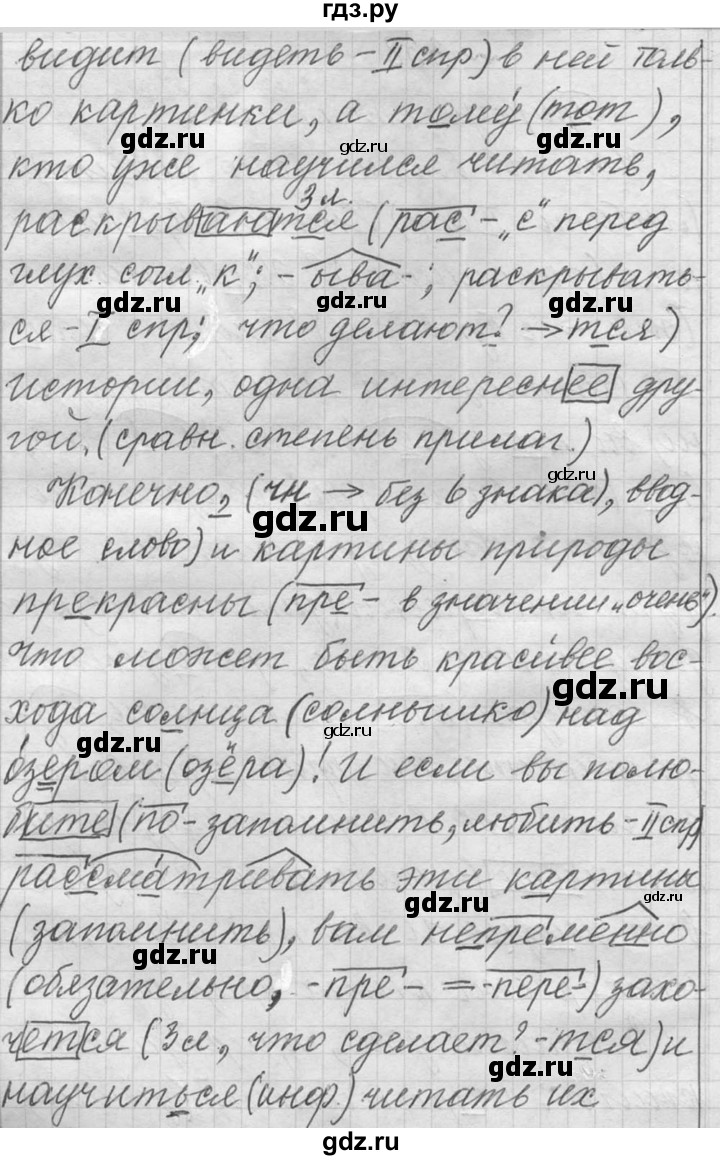 гдз.ру
видит (видеть – II спр) в ней толь-
ко картинки, а тому́ (тот),
gdz.ru gdz.ru
кто уже научился читать,
3 л.
раскрываются (рас – „с" перед
gdz.ru
глух. согл „к"; -ыва- ; раскрывать-
gdz.ru gdz.ru
ся – I спр; что делают? → тся)
истории, одна интереснее дру-
гой. (сравн. степень прилаг.)
gdz.ru
Конечно, (чн → без ь знака), ввод-
gdz.ru
ное слово) и картины природы
прекрасны (пре- в значении „очень").
Что может быть краси́вее вос-
gdz.ru
хода солнца (солнышко) над
gdz.ru gdz.ru
о́зером (озёра)! И если вы полю-
бите (по-запомнить, любить – II спр)
рассматривать эти картины
gdz.ru gdz.ru
(запомнить), вам непременно
gdz.ru
(обязательно, -пре- = -пере-) захо-
чется (3 л, что сделает? -тся) и
gdz.ru
научиться (инф.) читать их
gdz.ru
gdz.ru